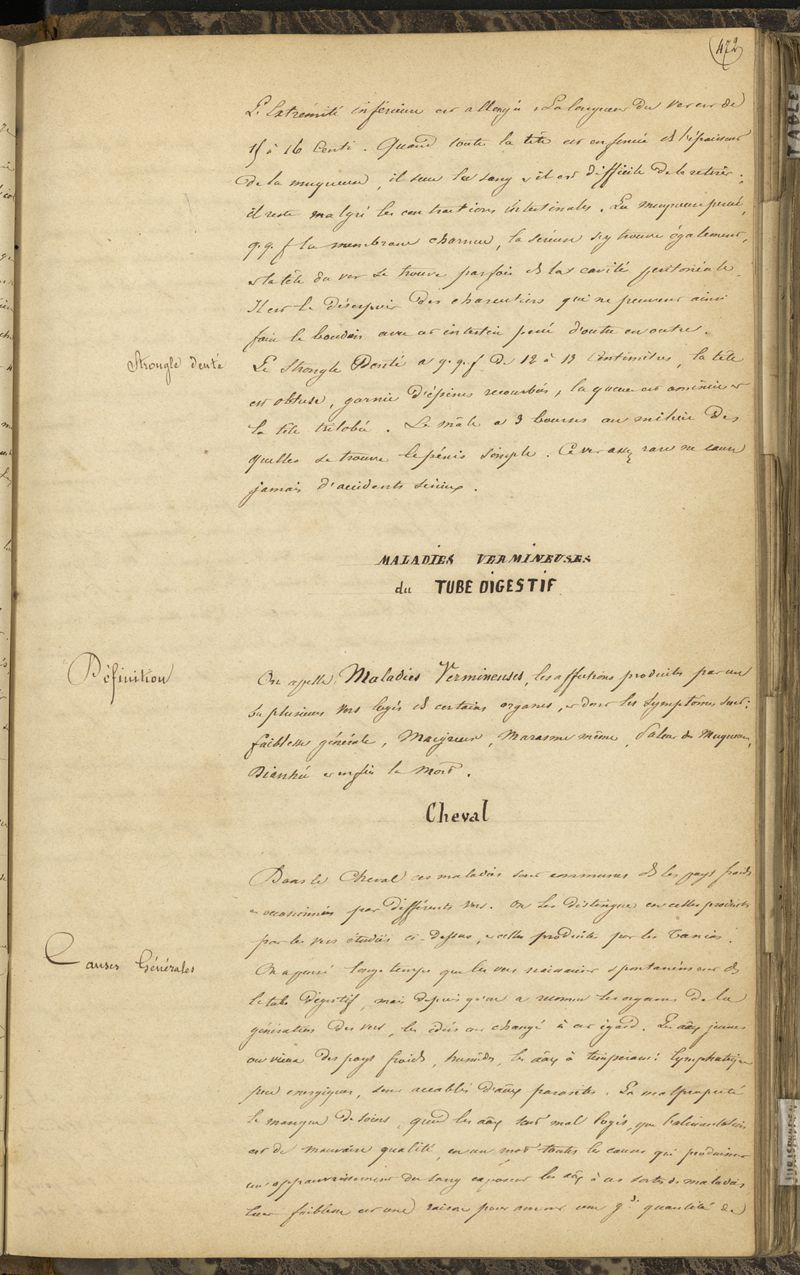 472
L'extrémité inférieure est allongée. La longueur du ver est de
15 à 16 Centi. Quand toute la tête est enfoncée ds l'épaisseur
de la muqueuse, il suce le sang & il est difficile de le retirer;
il reste malgré les contractions intestinales. La muqueuse percée,
q.q.f la membrane charnue, la séreuse s'y trouve également,
& la tête du ver se trouve parfois ds la cavité péritonéale.
Il est le désespoir des charcutiers qui ne peuvent ainsi
faire le boudin avec cet intestin percé d'outre en outre.
Strongle denté
Le Strongle Denté a q.q.f de 12 à 13 Centimètres, la tête
est obtuse, garnie d'épines recourbées, la queue est amincie &
la tête trilobée. Le mâle a 3 bourses au milieu des
quelles se trouve le pénis simple. Ce ver assez rare ne cause
jamais d'accidents sérieux.
MALADIES VERMINEUSES
du TUBE DIGESTIF
Définition
On appelle Maladies Vermineuses, les affections produites par un
ou plusieurs vers logés ds certains organes, & dont les symptômes sont:
faiblesse générale, Maigreur, Marasme même, Pâleur des Muqueuses,
Diarrhée & enfin la Mort.
Cheval
Dans le Cheval ces maladies sont communes ds les pays froids
& occasionnées par différents vers. On les distingue en celles produites
par les vers étudiés ci-dessus, & celles produites par les Tænias.
Causes Générales
On a pensé longtemps que les vers naissaient spontanément ds
le tube digestif, mais depuis qu'on a reconnu les organes de la
génération des vers, les idées ont changé à cet égard. Les aãx jeunes
ou vieux des pays froids, humides, les aãx à tempérament lymphatique
peu énergiques, sont accablés d'aãx parasites. La malpropreté
le manque de soins, quand les aãx sont mal logés, que l'alimentation
est de mauvaise qualité, en un mot toutes les causes qui produisent
un appauvrissement du sang exposent les aãx à ces sortes de maladies
leur faiblesse est une raison pour amener une gde quantité de
TABLE